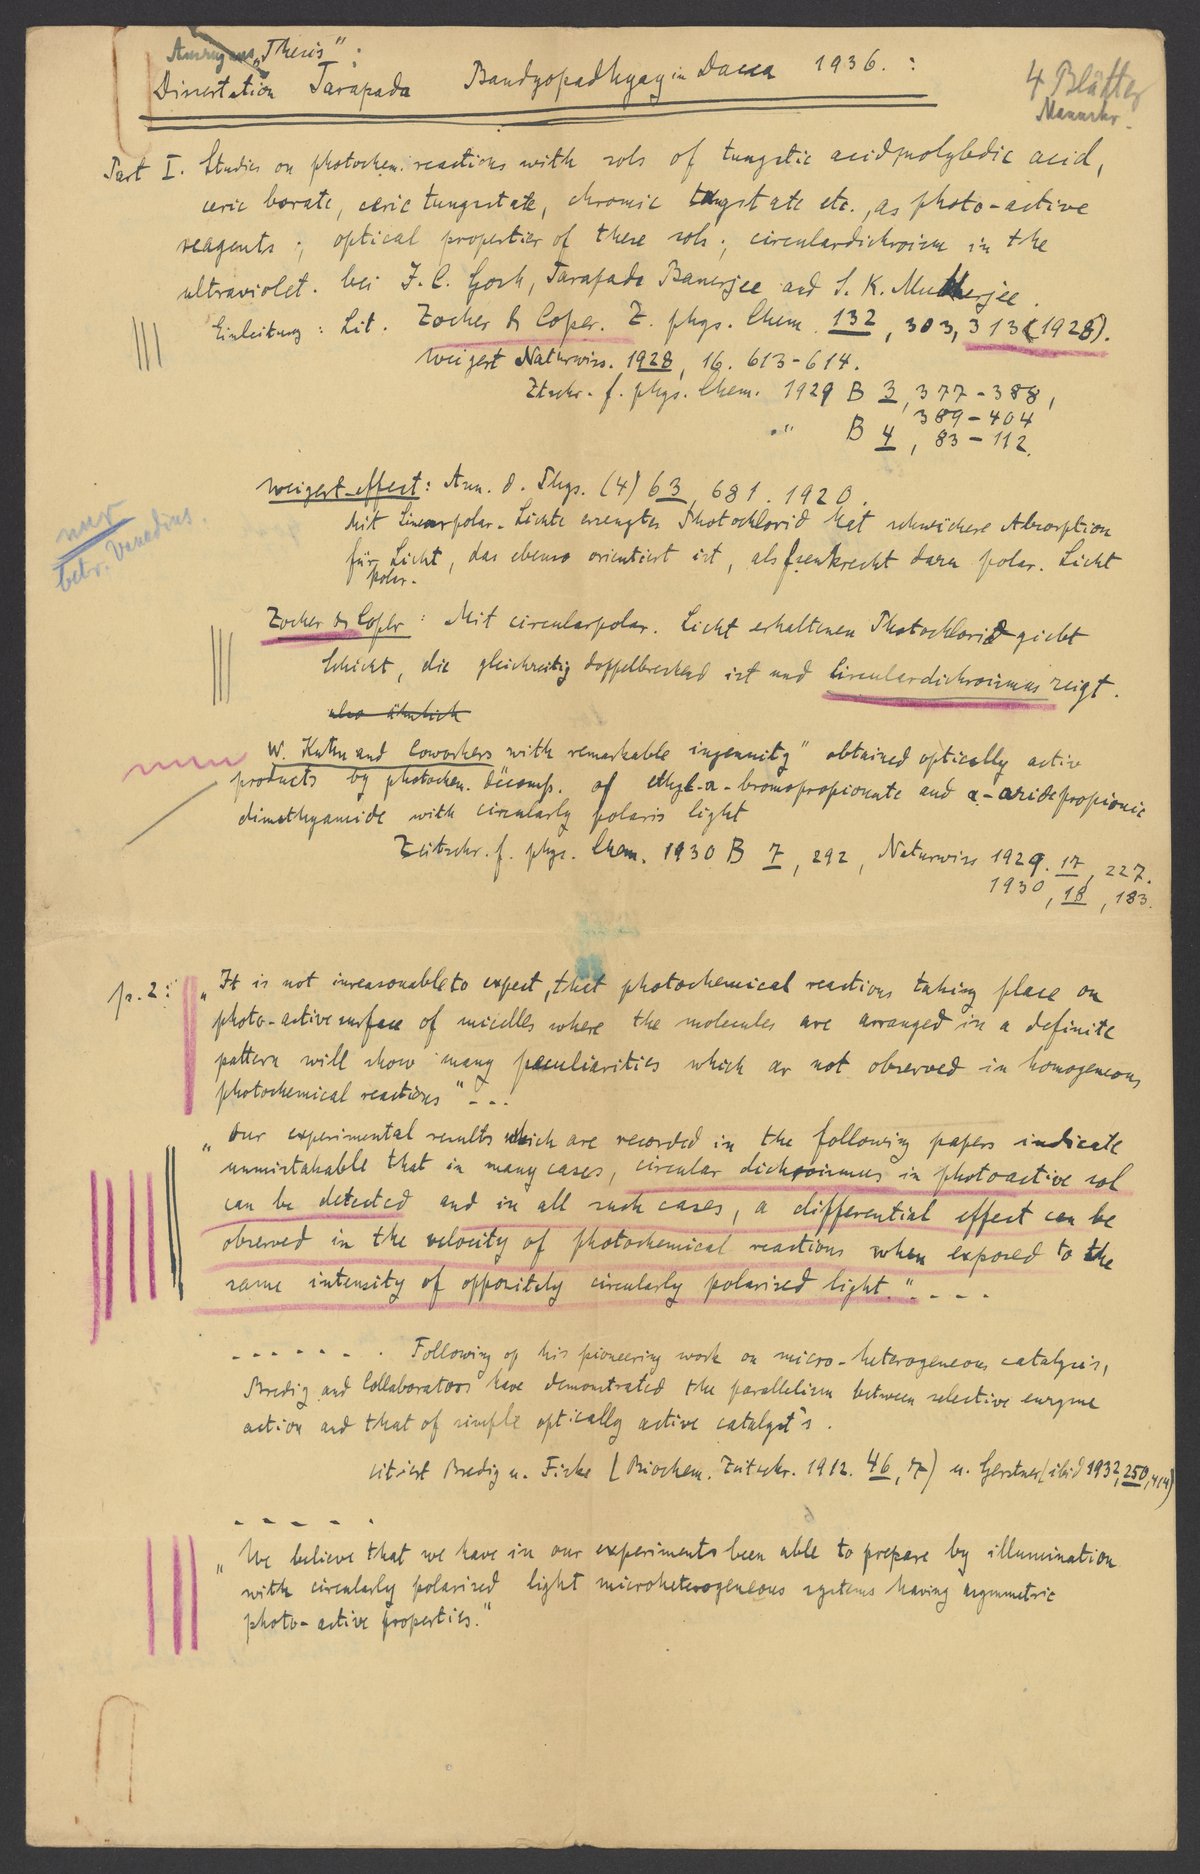 Auszug aus „Thesis":
Dissertation Tarapada Bandyopadhyay in Dacca 1936. :
4 Blätter
Manuskr.
Part I. Studies on photochem. reactions with sols of tungstic acid, molybdic acid,
ceric borate, ceric tungstate, chromic tungstate etc., as photo-active
reagents; optical properties of these sols; circulardichroism in the
ultraviolet. bei J. C. Gosh, Tarapada Banerjee and S. K. Mukherjee.
Einleitung: Lit. Zocher & Coper. Z. phys. Chem. 132, 303, 313 (1928).
Weigert Naturwiss. 1928, 16. 613-614.
Ztschr. f. phys. Chem. 1929 B 3, 377-388,
389-404
" B 4, 83-112.
Weigert-effect: Ann. d. Phys. (4) 63, 681. 1920.
Mit Linearpolar. Lichte erzeugtes Photochlorid hat schwächere Absorption
für Licht, das ebenso orientiert ist, als f. senkrecht dazu polar. Licht
polar.
nur
betr.
Zocher & Coper: Mit circularpolar. Licht erhaltenen Photochlorid giebt
Schicht, die gleichzeitig doppelbrechend ist und Circulardichroismus zeigt.
also ähnlich
W. Kuhn and Coworkers with remarkable ingenuity" obtained optically active
products by photochem. decomp. of ethyl-α-bromopropionate and α-azidopropionic
dimethyamide with circularly polaris light
Zeitschr. f. phys. Chem. 1930 B 7, 292, Naturwiss 1929. 17, 227.
1930, 18, 183.
p. 2: „It is not inreasonable to expect, that photochemical reactions taking place on
photo-active surface of micelles where the molecules are arranged in a definite
pattern will show many peculiarities which ar not observed in homogeneous
photochemical reactions" - - -
„Our experimental results which are recorded in the following papers indicate
unmistakable that in many cases, circular dichroismus in photoactive sol
can be detected and in all such cases, a differential effect can be
observed in the velocity of photochemical reactions when exposed to the
same intensity of oppositely circularly polarized light." - - - -
- - - - - - . Following op his pioneering work on micro-heterogeneous catalysis,
Bredig and Collaborators have demonstrated the parallelism between selective enzyme
action and that of simple optically active catalyst's.
citiert Bredig u. Fiske (Biochem. Zeitschr. 1912. 46, 7) u. Gerstner (ibid 1932, 250, 414)
- - - - -
„We believe that we have in our experiments been able to prepare by illumination
with circularly polarized light microheterogeneous systems having asymmetric
photo-active properties."